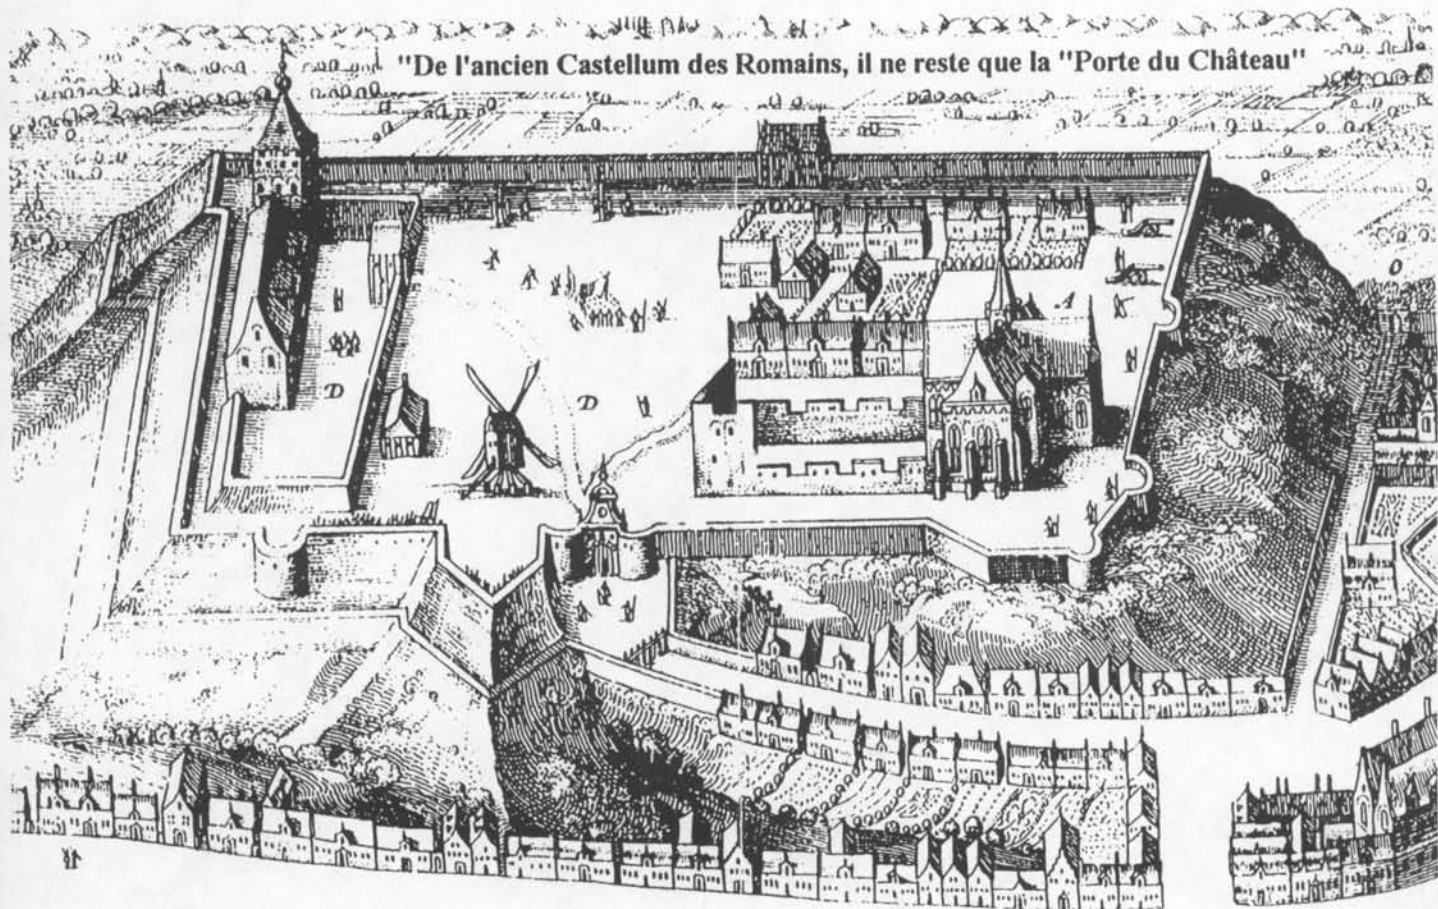 "De l'ancien Castellum des Romains, il ne reste que la "Porte du Château"
A
O
D
D